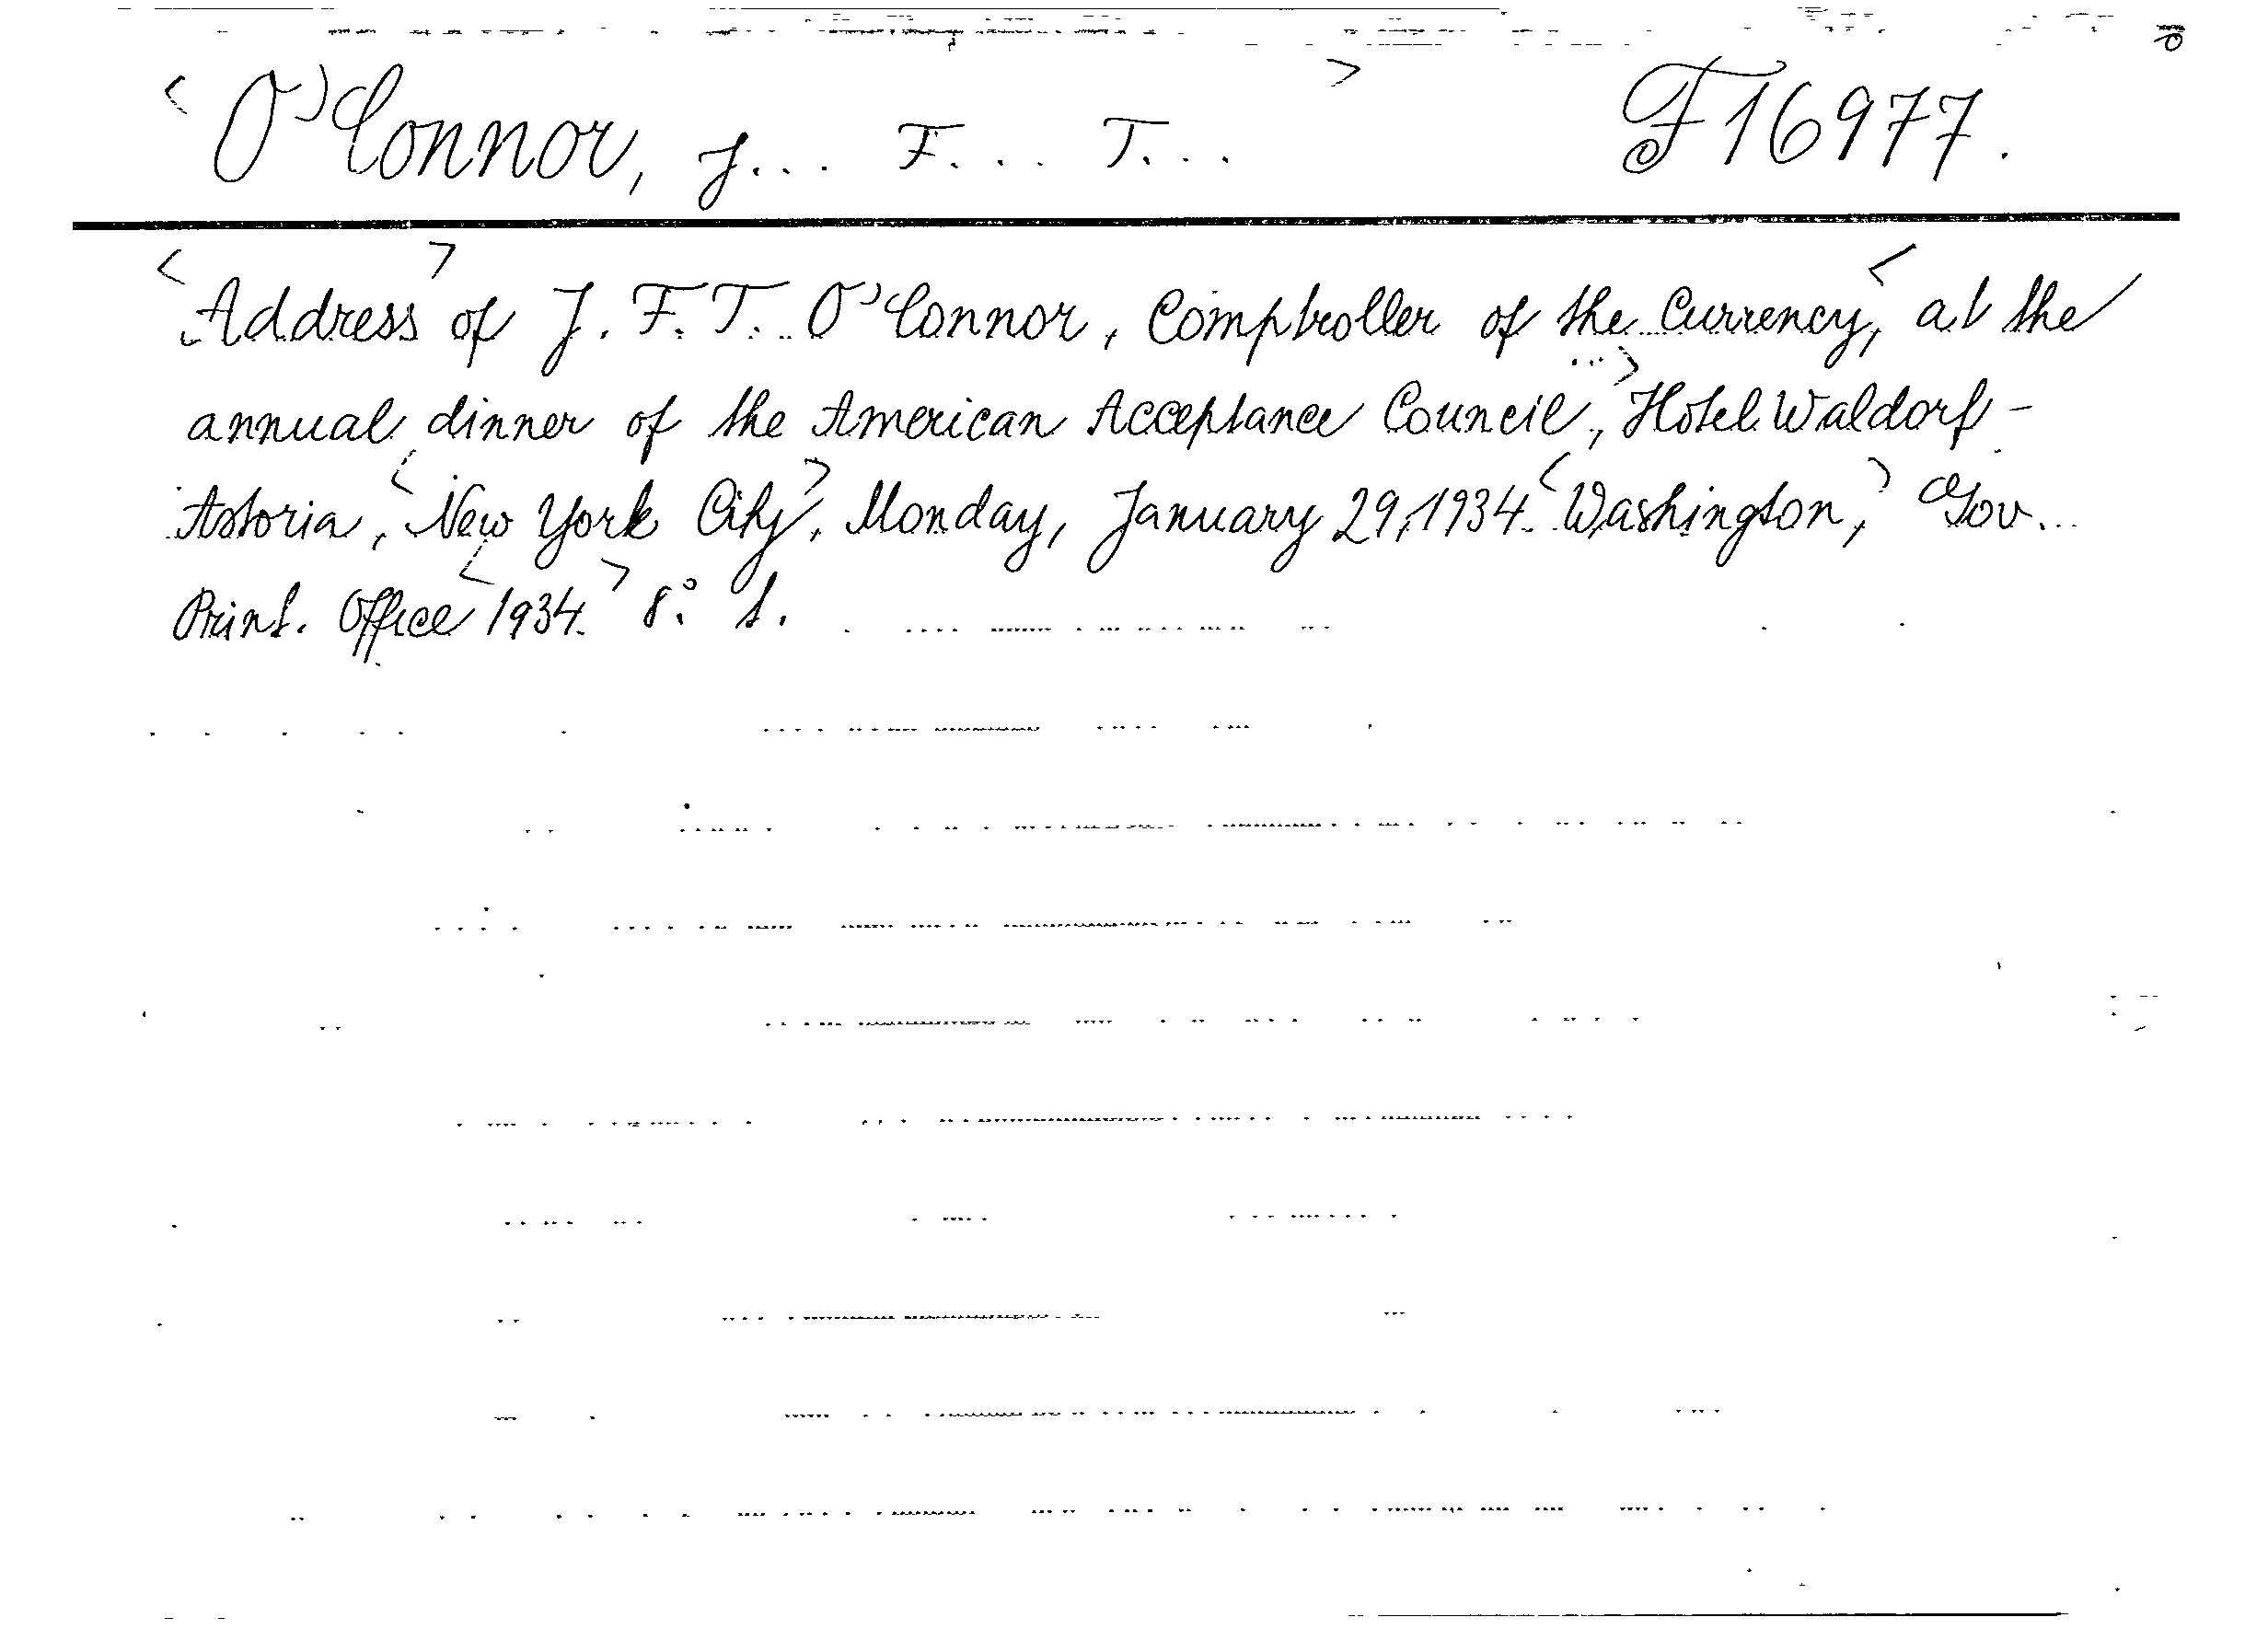 <O'Connor, J... F... T...> F16977.
<Address> of J. F. T. O'Connor, Comptroller of the Currency,< at the
annual dinner of the American Acceptance Council, ...> Hotel Waldorf-
Astoria, <New York City>, Monday, January 29, 1934. <Washington,> Gov.
Print. Office <1934.> 8°. 1.